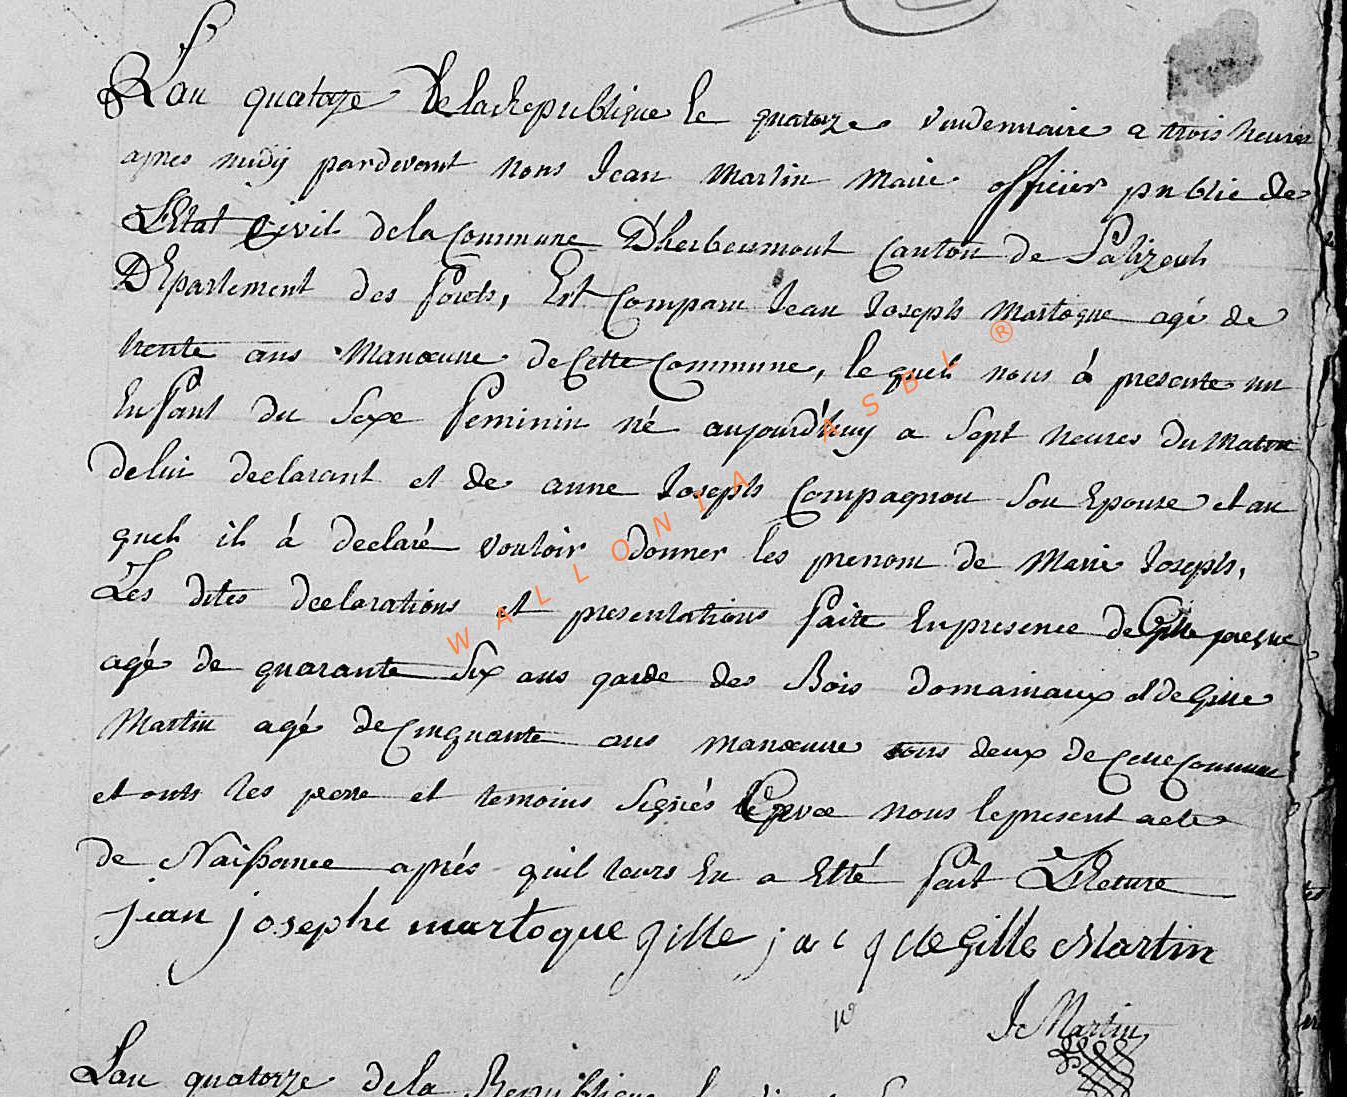 Lan quatorze De la Republique le quatorze vindemiaire a trois heures
apres midÿ pardevant nous Jean Martin Maire officier public de
LEtat Civil de la Commune D'herbeumont Canton de Palizeuh
DEpartement des forets, Est Comparu Jean Joseph Martoque agé de
trente ans Manœuvre de Cette Commune, le queh nous à presente un
Enfant du Sexe feminin né aujourd'huy a sept heures du Matin
de lui declarant et de anne Joseph Compagnon son Epouse et au
queh ih à declaré vouloir donner les prenom de Marie Joseph,
Les dites declarations et presentations faite En presence de Gille
agé de quarante six ans garde des Bois domainiaux et de Gille
Martin agé de Cinquante ans manœuvre tous deux de Cette Commune
et onts les pere et temoins signés avec nous le present acte
de Naissance aprés quil leurs En a Etté fait Lecture
jean josephe martoque gille jacque Gille Martin
J Martin
Lan quatorze de la Republique le
WALLONIA ASBL ®